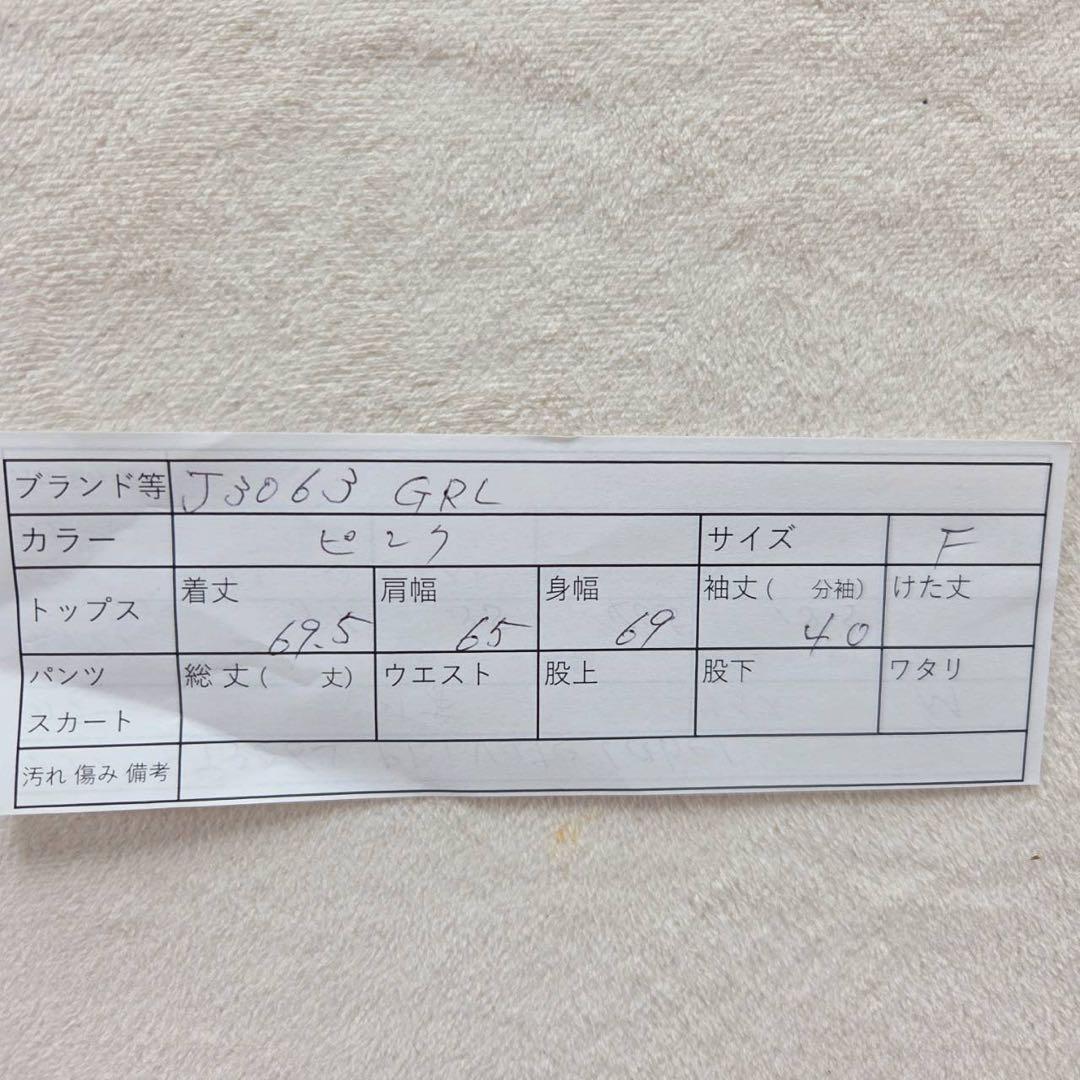 ブランド等 J3063 GRL
カラー ピンク サイズ F
トップス 着丈 69.5 肩幅 65 身幅 69 袖丈( 分袖) 40 けた丈
パンツ スカート 総丈( 丈) ウエスト 股上 股下 ワタリ
汚れ 傷み 備考